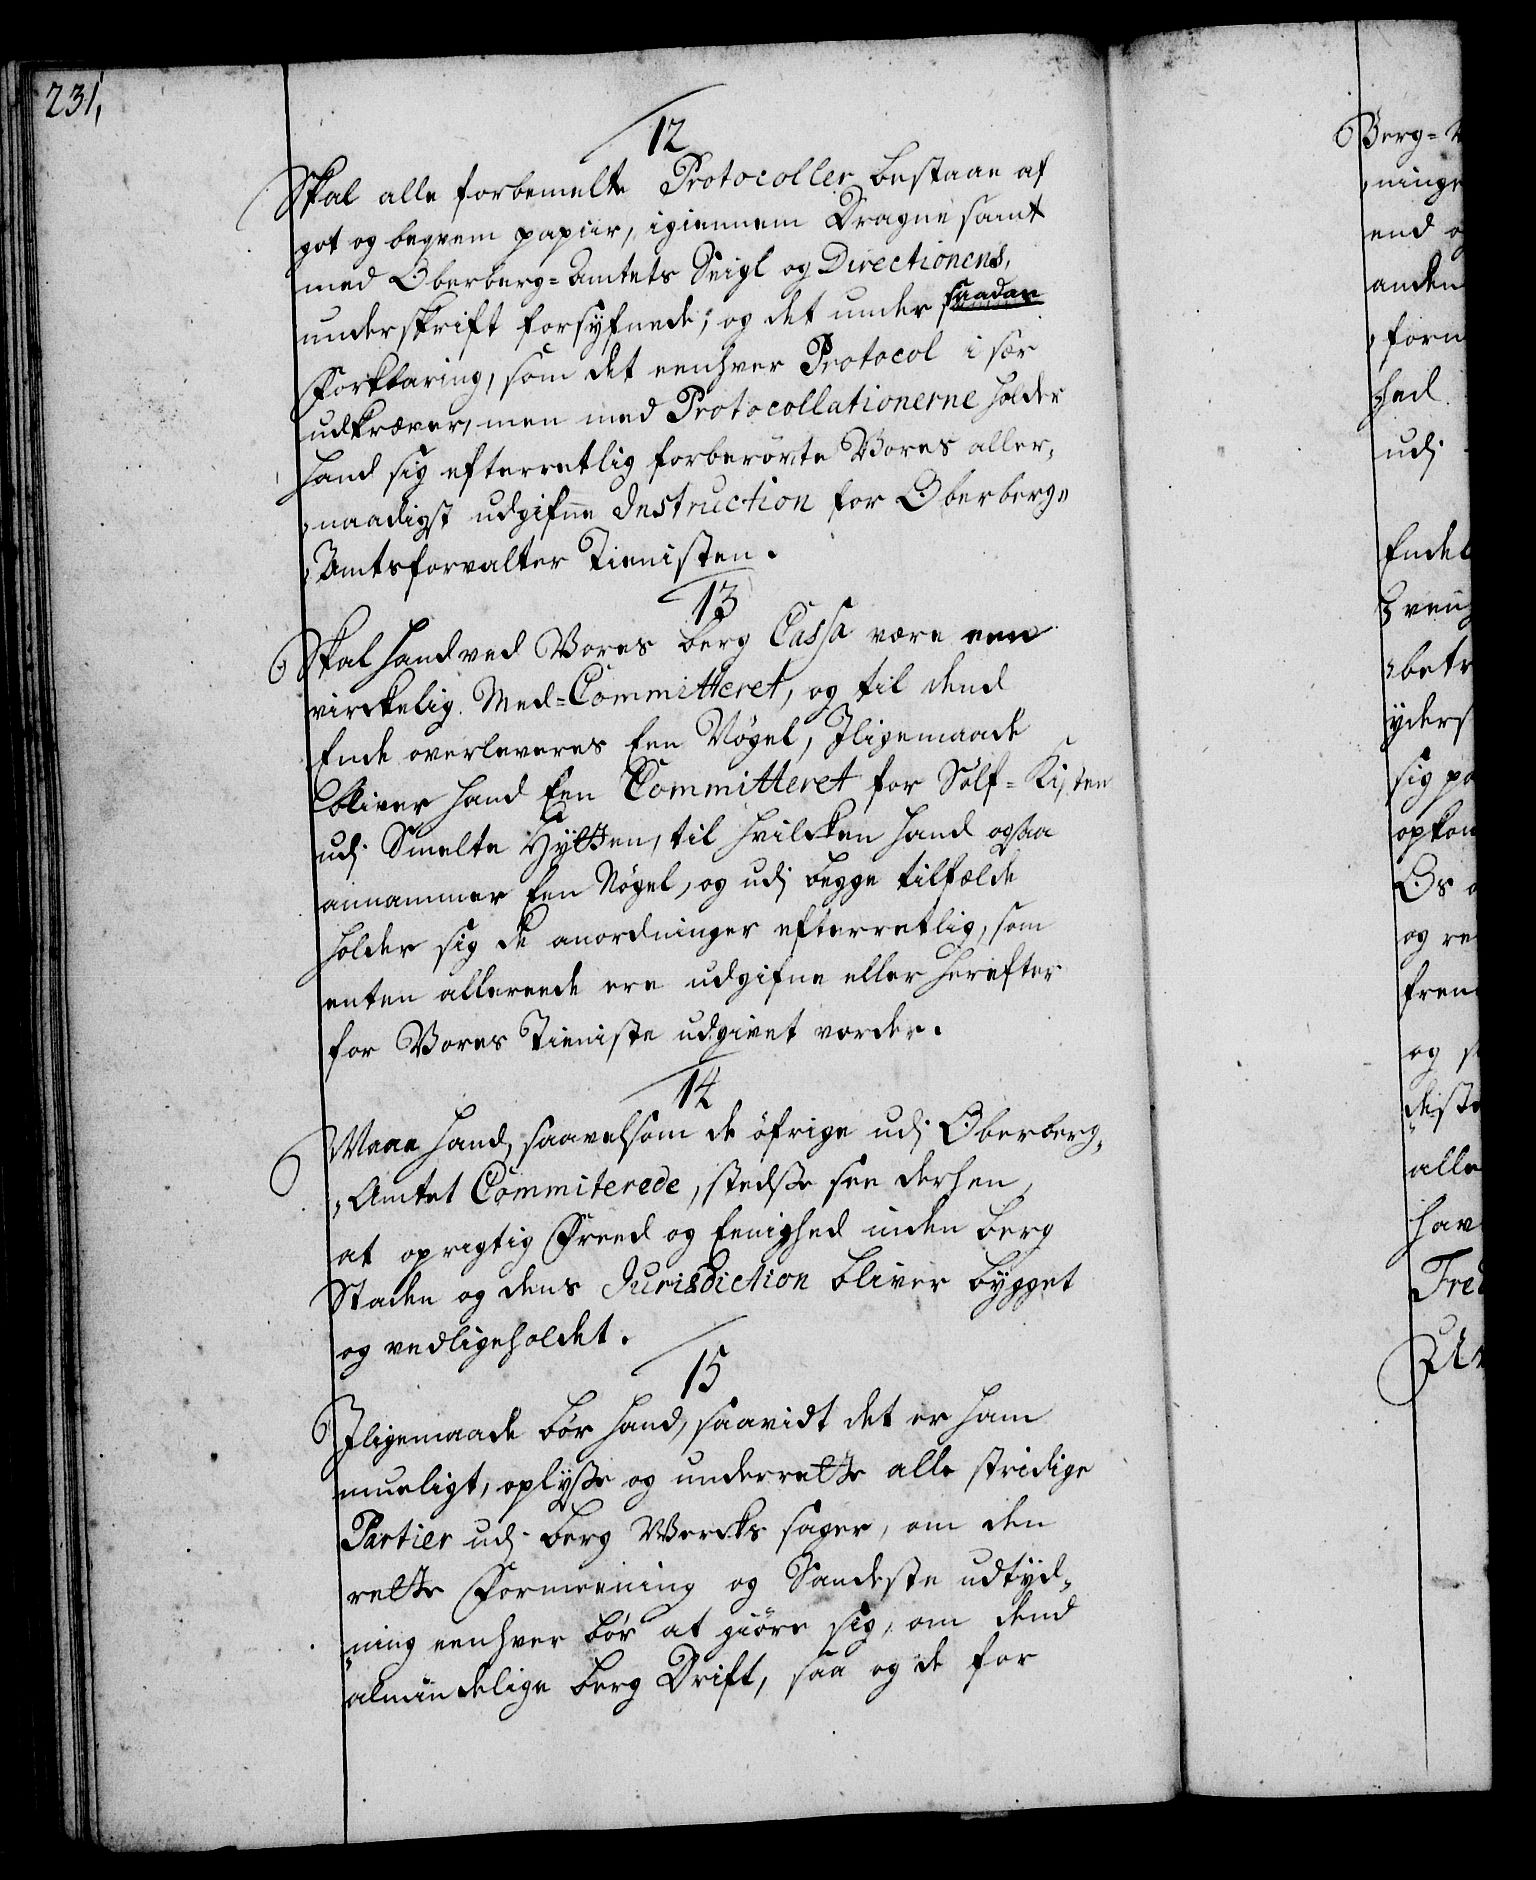 231,
12
Skal alle forbemelte Protocoller bestaae af
got og beqvem papiir, igiennem Dragne samt
med Oberberg=Amtets Seigl og Directionens,
underskrift forsyfnede; og det under saadan
Forklaring, som det eenhver Protocol i sær
udkræver, men med Protocollationerne holder
hand sig efterretlig forberørte Vores aller,
,naadigst udgifne Instruction for Oberberg,,
,Amtsforvalter Tienisten.
13
Skal hand ved Vores berg Cassa være een
virckelig Med=Committeret, og til dend
Ende overleveres Een Nögel, Iligemaade
bliver hand Een Committeret for Sölf=Kisten
udj Smelte Hytten, til hvilcken hand ogsaa
annammer Een Nögel, og udj begge tilfælde
holder sig de anordninger efterretlig, som
enten allereede ere udgifne eller herefter
for Vores Tieniste udgivet vorder.
14
Maae hand, saavelsom de öfrige udj Oberberg,
,Amtet Commiterede, stedsse see derhen,
at oprigtig Freed og Eenighed inden berg
Staden og dens Jurisdiction bliver bygget
og vedligeholdet.
15
Iligemaade bör hand, saavidt det er ham
mueligt, oplysse og underrette alle stridige
Partier udj berg Wercks sager, om den
rette Formeening og Sandeste udtyd,
,,ning eenhver bör at giöre sig, om dend
almindelige berg Drift, saa og de for
Berg=
,ninge
end og
anden
,form
hed
udj
Endel
,betr
yders
sig pa
opkom
Os
og re
frem
og
diste
alle
hav
Fred